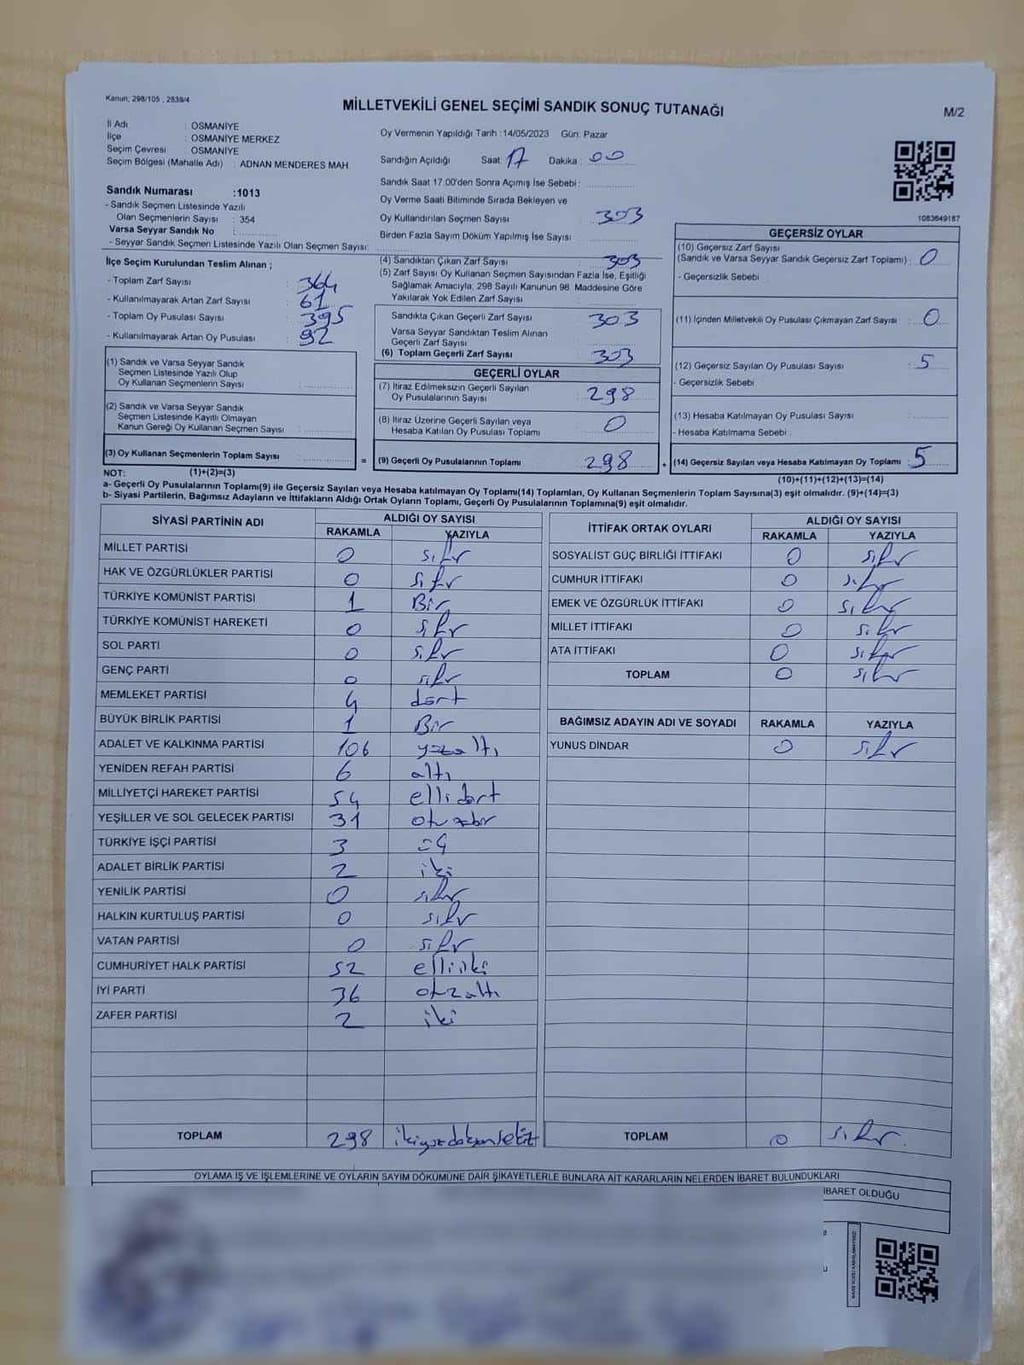 Kanun; 298/105 , 2839/4
MİLLETVEKİLİ GENEL SEÇİMİ SANDIK SONUÇ TUTANAĞI
M/2
İl Adı : OSMANİYE
İlçe : OSMANİYE MERKEZ
Seçim Çevresi : OSMANİYE
Seçim Bölgesi (Mahalle Adı) : ADNAN MENDERES MAH
Oy Vermenin Yapıldığı Tarih :14/05/2023 Gün: Pazar
Sandığın Açıldığı Saat: 17 Dakika : 00
Sandık Saat 17:00'den Sonra Açımış İse Sebebi :
Oy Verme Saati Bitiminde Sırada Bekleyen ve
Oy Kullandırılan Seçmen Sayısı 303
Birden Fazla Sayım Döküm Yapılmış İse Sayısı :
1083649187
Sandık Numarası :1013
- Sandık Seçmen Listesinde Yazılı
Olan Seçmenlerin Sayısı : 354
Varsa Seyyar Sandık No :
- Seyyar Sandık Seçmen Listesinde Yazılı Olan Seçmen Sayısı:
İlçe Seçim Kurulundan Teslim Alınan ;
- Toplam Zarf Sayısı : 364
- Kullanılmayarak Artan Zarf Sayısı : 61
- Toplam Oy Pusulası : 395
- Kullanılmayarak Artan Oy Pusulası : 92
(1) Sandık ve Varsa Seyyar Sandık
Seçmen Listesinde Yazılı Olup
Oy Kullanan Seçmenlerin Sayısı :
(2) Sandık ve Varsa Seyyar Sandık
Seçmen Listesinde Kayıtlı Olmayan
Kanun Gereği Oy Kullanan Seçmen Sayısı :
(3) Oy Kullanan Seçmenlerin Toplam Sayısı :
(4) Sandıktan Çıkan Zarf Sayısı : 303
(5) Zarf Sayısı Oy Kullanan Seçmen Sayısından Fazla İse, Eşitliği
Sağlamak Amacıyla, 298 Sayılı Kanunun 98. Maddesine Göre
Yakılarak Yok Edilen Zarf Sayısı :
Sandıkta Çıkan Geçerli Zarf Sayısı : 303
Varsa Seyyar Sandıktan Teslim Alınan
Geçerli Zarf Sayısı :
(6) Toplam Geçerli Zarf Sayısı : 303
GEÇERLİ OYLAR
(7) İtiraz Edilmeksizin Geçerli Sayılan
Oy Pusulalarının Sayısı : 298
(8) İtiraz Üzerine Geçerli Sayılan veya
Hesaba Katılan Oy Pusulası Toplamı : 0
= (9) Geçerli Oy Pusulalarının Toplamı : 298
GEÇERSİZ OYLAR
(10) Geçersiz Zarf Sayısı
(Sandık ve Varsa Seyyar Sandık Geçersiz Zarf Toplamı) : 0
- Geçersizlik Sebebi
(11) İçinden Milletvekili Oy Pusulası Çıkmayan Zarf Sayısı : 0
(12) Geçersiz Sayılan Oy Pusulası Sayısı : 5
- Geçersizlik Sebebi
(13) Hesaba Katılmayan Oy Pusulası Sayısı :
- Hesaba Katılmama Sebebi :
+ (14) Geçersiz Sayılan veya Hesaba Katılmayan Oy Toplamı : 5
NOT: (1)+(2)=(3)
(10)+(11)+(12)+(13)=(14)
a- Geçerli Oy Pusulalarının Toplamı(9) ile Geçersiz Sayılan veya Hesaba katılmayan Oy Toplamı(14) Toplamları, Oy Kullanan Seçmenlerin Toplam Sayısına(3) eşit olmalıdır. (9)+(14)=(3)
b- Siyasi Partilerin, Bağımsız Adayların ve İttifakların Aldığı Ortak Oyların Toplamı, Geçerli Oy Pusulalarının Toplamına(9) eşit olmalıdır.
SİYASİ PARTİNİN ADI ALDIĞI OY SAYISI
RAKAMLA YAZIYLA
MİLLET PARTİSİ 0 sıfır
HAK VE ÖZGÜRLÜKLER PARTİSİ 0 sıfır
TÜRKİYE KOMÜNİST PARTİSİ 1 Bir
TÜRKİYE KOMÜNİST HAREKETİ 0 sıfır
SOL PARTİ 0 sıfır
GENÇ PARTİ 0 sıfır
MEMLEKET PARTİSİ 4 dört
BÜYÜK BİRLİK PARTİSİ 1 Bir
ADALET VE KALKINMA PARTİSİ 106 yüzaltı
YENİDEN REFAH PARTİSİ 6 altı
MİLLİYETÇİ HAREKET PARTİSİ 54 ellidört
YEŞİLLER VE SOL GELECEK PARTİSİ 31 otuzbir
TÜRKİYE İŞÇİ PARTİSİ 3 üç
ADALET BİRLİK PARTİSİ 2 iki
YENİLİK PARTİSİ 0 sıfır
HALKIN KURTULUŞ PARTİSİ 0 sıfır
VATAN PARTİSİ 0 sıfır
CUMHURİYET HALK PARTİSİ 52 elliiki
İYİ PARTİ 36 otuzaltı
ZAFER PARTİSİ 2 iki
TOPLAM 298 ikiyüzdoksansekiz
İTTİFAK ORTAK OYLARI ALDIĞI OY SAYISI
RAKAMLA YAZIYLA
SOSYALİST GÜÇ BİRLİĞİ İTTİFAKI 0 sıfır
CUMHUR İTTİFAKI 0 sıfır
EMEK VE ÖZGÜRLÜK İTTİFAKI 0 sıfır
MİLLET İTTİFAKI 0 sıfır
ATA İTTİFAKI 0 sıfır
TOPLAM 0 sıfır
BAĞIMSIZ ADAYIN ADI VE SOYADI RAKAMLA YAZIYLA
YUNUS DİNDAR 0 sıfır
TOPLAM 0 sıfır
OYLAMA İŞ VE İŞLEMLERİNE VE OYLARIN SAYIM DÖKÜMÜNE DAİR ŞİKAYETLERLE BUNLARA AİT KARARLARIN NELERDEN İBARET BULUNDUKLARI
İBARET OLDUĞU